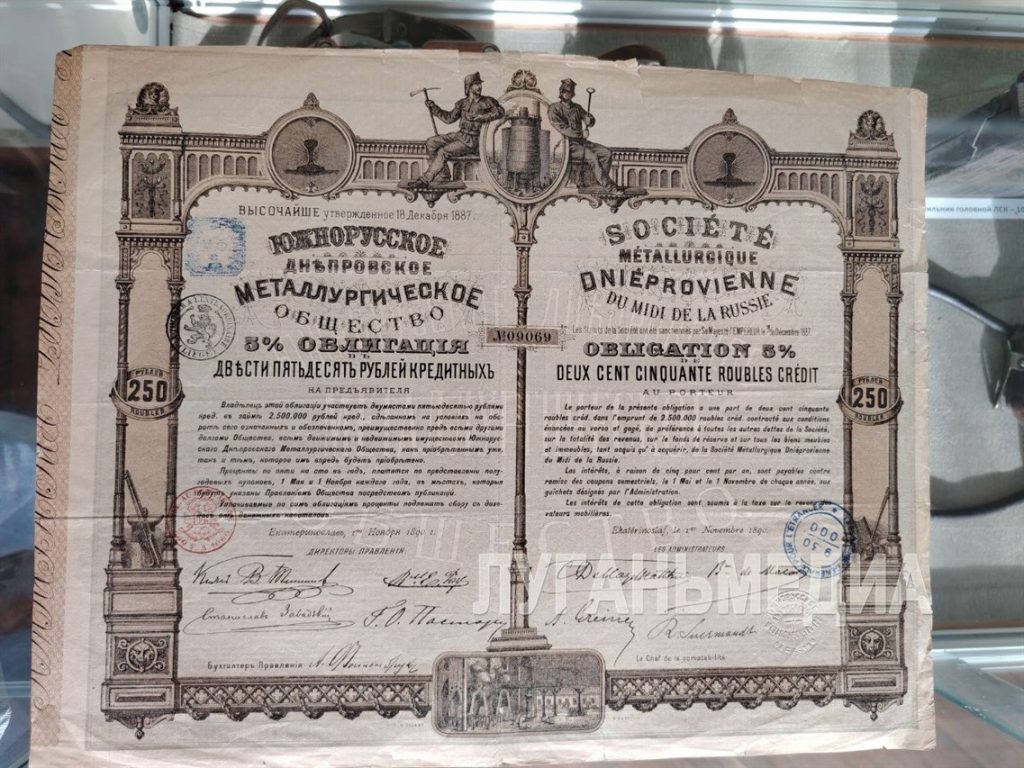 ВЫСОЧАЙШЕ утвержденное 18 Декабря 1887 г.
ЮЖНОРУССКОЕ
ДНѢПРОВСКОЕ
МЕТАЛЛУРГИЧЕСКОЕ
ОБЩЕСТВО
5% ОБЛИГАЦІЯ
ВЪ
ДВѢСТИ ПЯТЬДЕСЯТЪ РУБЛЕЙ КРЕДИТНЫХЪ
НА ПРЕДЪЯВИТЕЛЯ
Владѣлецъ этой облигаціи участвуетъ двумястами пятьюдесятью рублями
кред. въ займѣ 2.500.000 рублей кред., сдѣланномъ на условіяхъ на обо-
ротѣ сего означенныхъ и обезпеченномъ, преимущественно предъ всѣми другими
долгами Общества, всѣмъ движимымъ и недвижимымъ имуществомъ Южнорус-
скаго Днѣпровскаго Металлургическаго Общества, какъ пріобрѣтеннымъ уже,
такъ и тѣмъ, которое имъ впредь будетъ пріобрѣтено.
Проценты по пяти на сто въ годъ, платятся по представленіи полу-
годовыхъ купоновъ, 1 Мая и 1 Ноября каждаго года, въ мѣстахъ, которыя
будутъ указаны Правленіемъ Общества посредствомъ публикаціи.
Уплачиваемые по симъ облигаціямъ проценты подлежатъ сбору съ дохо-
довъ денежныхъ капиталовъ.
Екатеринославъ, 1го Ноября 1890 г.
ДИРЕКТОРЫ ПРАВЛЕНІЯ
Бухгалтеръ Правленія
SOCIÉTÉ
MÉTALLURGIQUE
DNIÉPROVIENNE
DU MIDI DE LA RUSSIE
Les Statuts de la Société ont été sanctionnés par Sa Majesté l'EMPEREUR le 18/30 Décembre 1887
OBLIGATION 5%
DE
DEUX CENT CINQUANTE ROUBLES CRÉDIT
AU PORTEUR
Le porteur de la présente obligation a une part de deux cent cinquante
roubles créd. dans l'emprunt de 2.500.000 roubles créd. contracté aux conditions
énoncées au verso et gagé, de préférence à toutes les autres dettes de la Société,
sur la totalité des revenus, sur le fonds de réserve et sur tous les biens meubles
et immeubles, tant acquis qu'à acquérir, de la Société Métallurgique Dniéprovienne
du Midi de la Russie.
Les intérêts, à raison de cinq pour cent par an, sont payables contre
remise des coupons semestriels, le 1 Mai et le 1 Novembre de chaque année, aux
guichets désignés par l'Administration.
Les intérêts de cette obligation sont soumis à la taxe sur le revenu des
valeurs mobilières.
Ekatérinoslaf, le 1er Novembre 1890.
LES ADMINISTRATEURS
Le Chef de la comptabilité
№09069
РУБЛЕЙ
250
ROUBLES
РУБЛЕЙ
250
ROUBLES
ЛУГАНЬМЕДИА